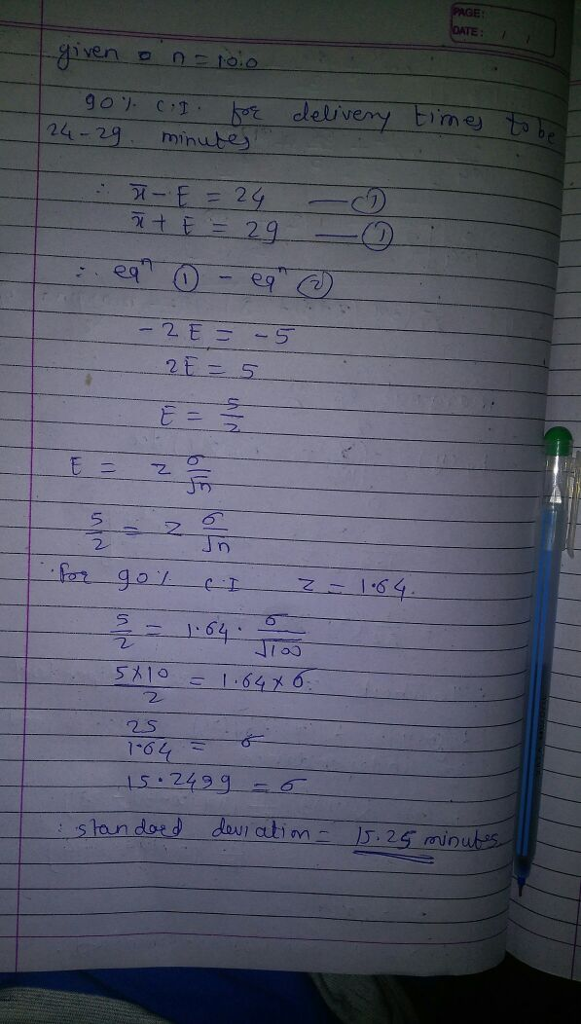 PAGE:
DATE: / /
given n = 100
90% C.I. for delivery times to be
24-29 minutes
∴ x̄ - E = 24 — ①
x̄ + E = 29 — ①
∴ eqⁿ ① - eqⁿ ②
-2E = -5
2E = 5
E = 5/2
E = z σ/√n
5/2 = z σ/√n
∵ for 90% C.I z = 1.64.
5/2 = 1.64 · σ/√100
5×10/2 = 1.64 × σ.
25/1.64 = σ
15.2499 = σ
∴ standard deviation = 15.25 minutes